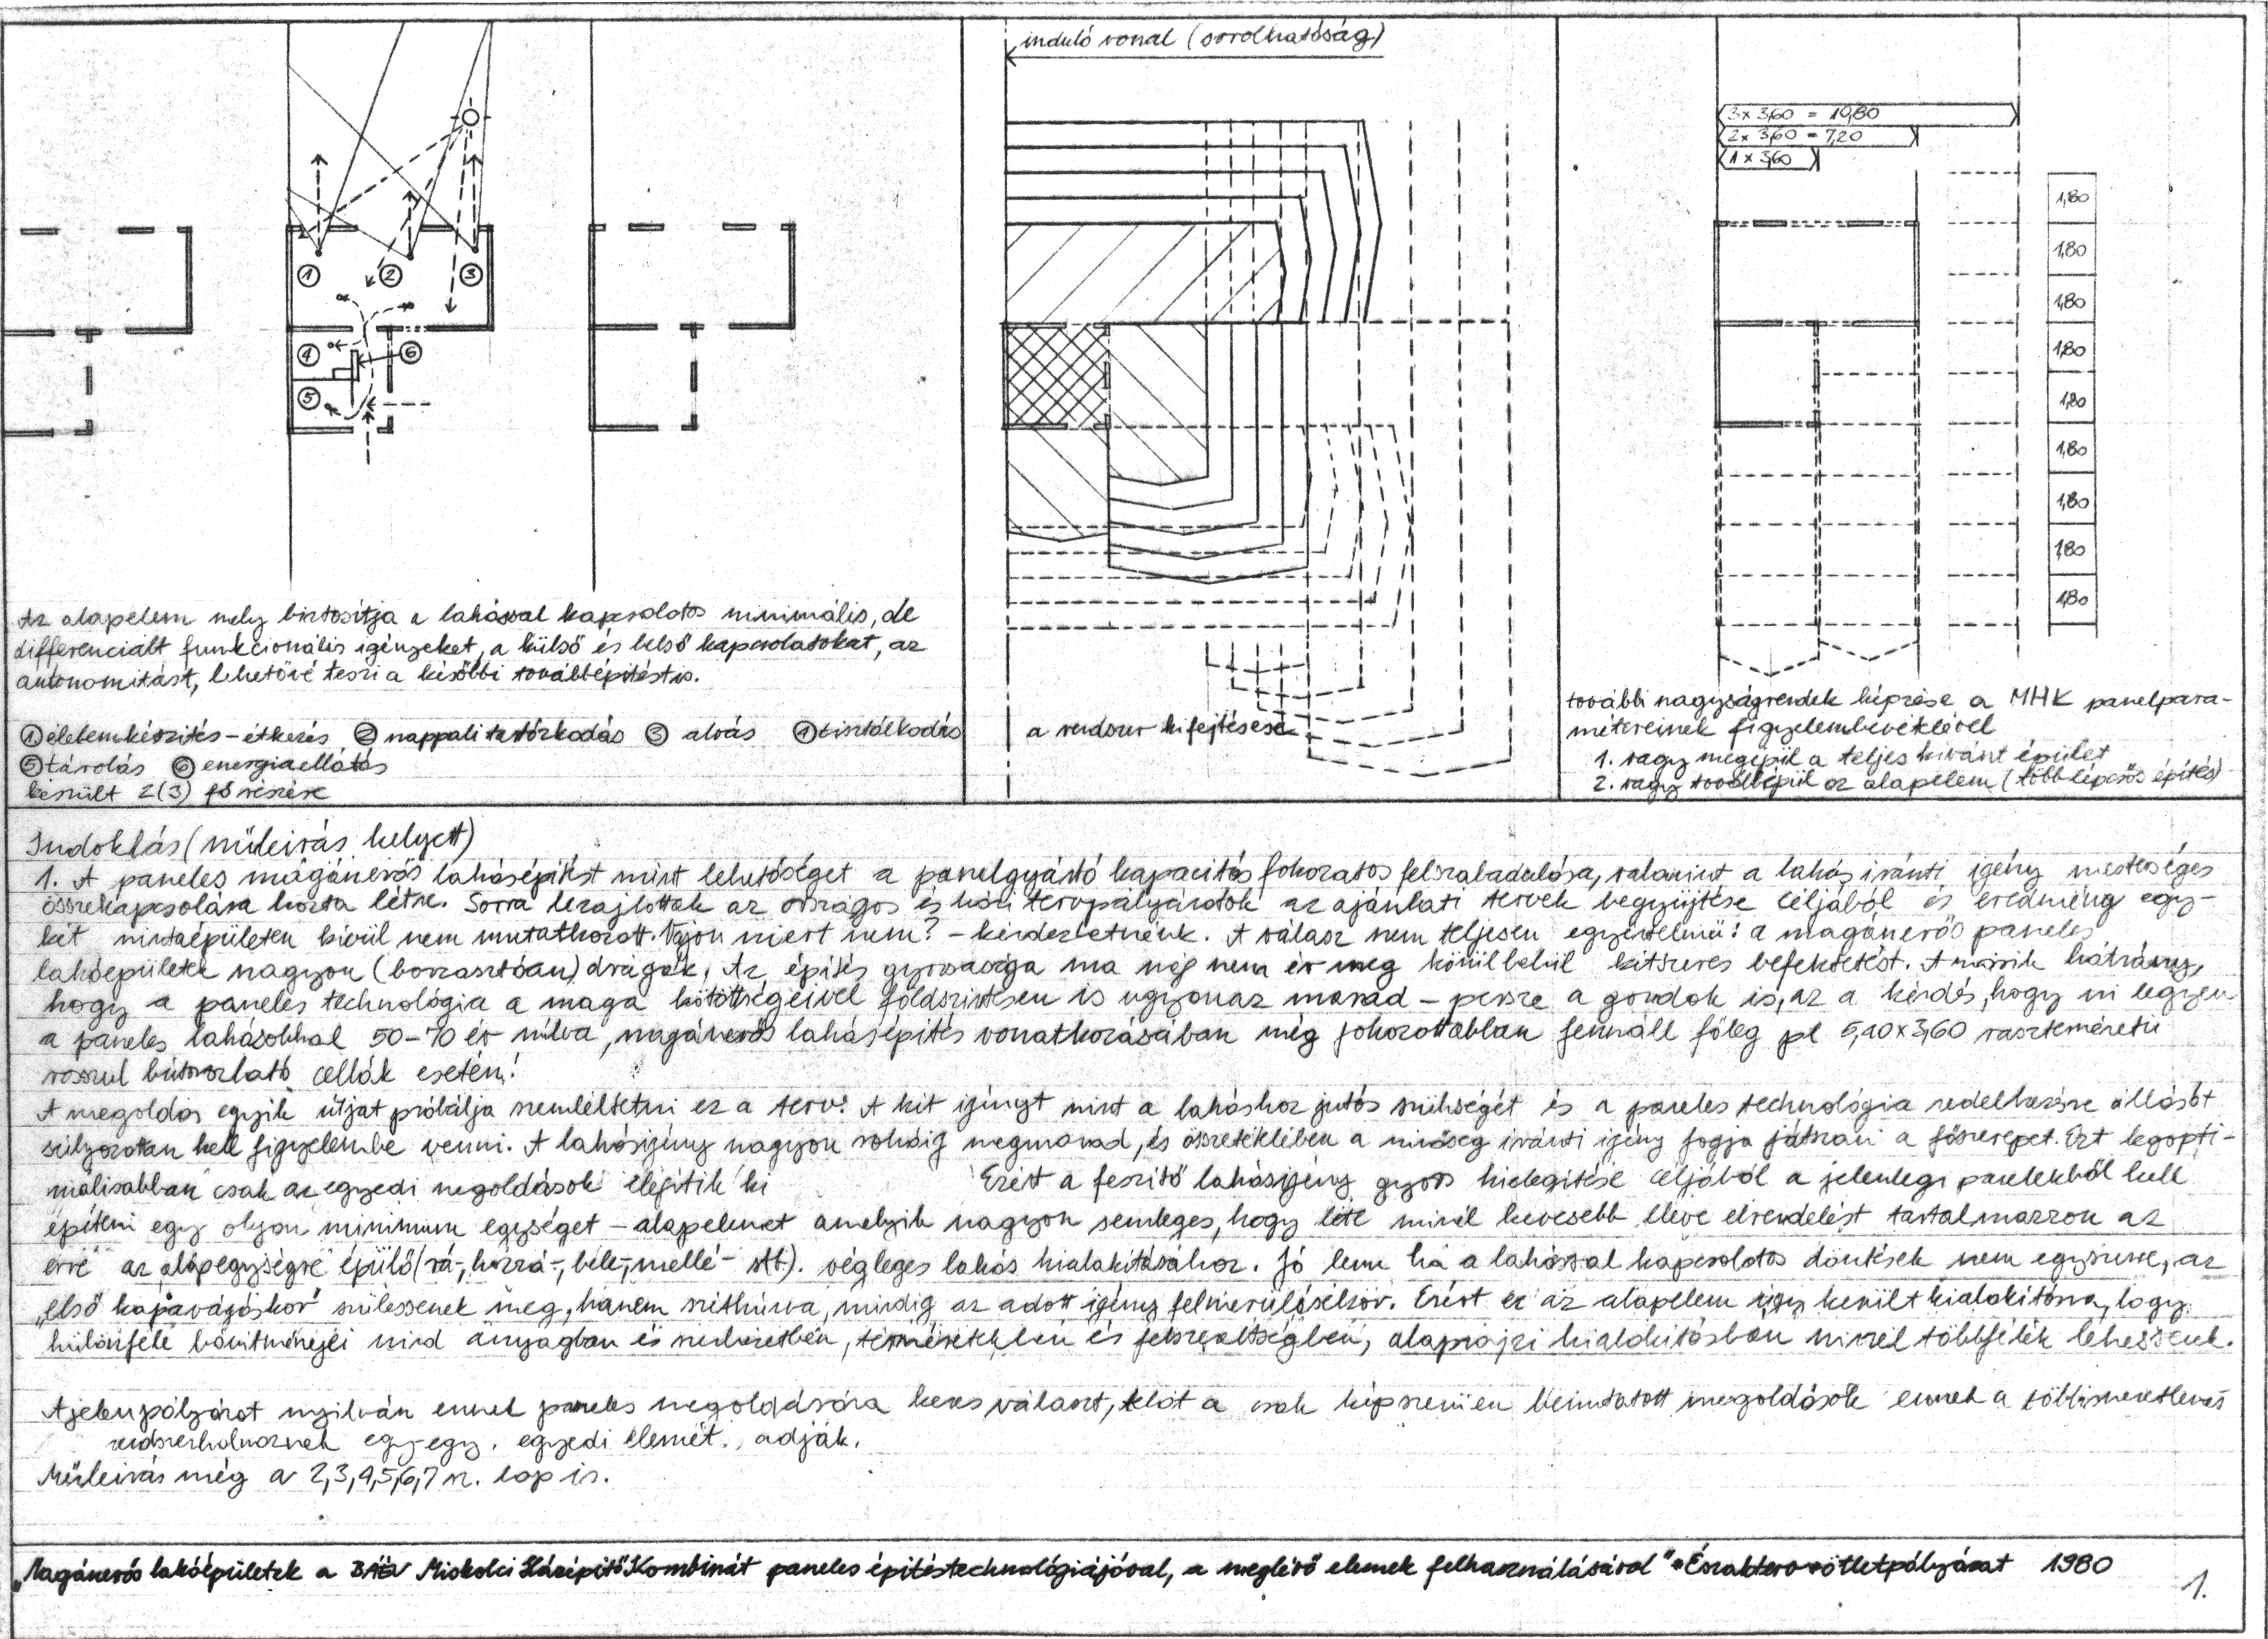 induló vonal (sorolhatóság)
3 x 3,60 = 10,80
2 x 3,60 = 7,20
1 x 3,60
1,80
1,80
1,80
1,80
1,80
1,80
1,80
1,80
1,80
1
2
3
4
6
5
Az alapelem mely biztosítja a lakással kapcsolatos minimális, de
differenciált funkcionális igényeket, a külső és belső kapcsolatokat, az
autonomitást, lehetővé teszi a későbbi továbbépítést is.
① ételemkészítés - étkezés ② nappali tartózkodás ③ alvás ④ tisztálkodás
⑤ tárolás ⑥ energiaellátás
készült 2(3) fő részére
a rendszer kifejtése
további nagyságrendek képzése a MHK panelpara-
métereinek figyelembevételével
1. vagy megépül a teljes kívánt épület
2. vagy továbbépül az alapelem (többlépcsős építés)
Indoklás (műleírás helyett)
1. A paneles magánerős lakásépítést mint lehetőséget a panelgyártó kapacitás fokozatos felszabadulása, valamint a lakás iránti igény mesterséges
összekapcsolása hozta létre. Sorra lezajlottak az országos és házi tervpályázatok az ajánlati tervek begyűjtése céljából és eredmény egy-
két mintaépületen kívül nem mutatkozott. Vajon miért nem? - kérdezhetnénk. A válasz nem teljesen egyértelmű: a magánerős paneles
lakóépületek nagyon (borzasztóan) drágák. Az építés gyorsasága ma még nem ér meg körülbelül kétszeres befektetést. A másik hátrány,
hogy a paneles technológia a maga kötöttségeivel földszintesen is ugyanaz marad - persze a gondok is, az a kérdés, hogy mi legyen
a paneles lakásokkal 50-70 év múlva, magánerős lakásépítés vonatkozásában még fokozottabban fennáll főleg pl 5,40x3,60 raszterméretű
rosszul bútorozható cellák esetén!
A megoldás egyik útját próbálja szemléltetni ez a terv. A két igényt mint a lakáshoz jutás szükségét és a paneles technológia rendelkezésre állását
súlyozottan kell figyelembe venni. A lakásigény nagyon sokáig megmarad, és összetételében a minőség iránti igény fogja játszani a főszerepet. Ezt legopti-
málisabban csak az egyedi megoldások elégítik ki Ezért a feszítő lakásigény gyors kielégítése céljából a jelenlegi panelekből kell
építeni egy olyan minimum egységet - alapelemet amelyik nagyon semleges, hogy léte minél kevesebb eleve elrendelést tartalmazzon az
erre az "alapegységre" épülő (rá-, hozzá-, bele-, mellé- stb). végleges lakás kialakításához. Jó lenne ha a lakással kapcsolatos döntések nem egyszerre, az
„első kapavágáskor" szülessenek meg, hanem széthúzva, mindig az adott igény felmerülésekor. Ezért ez az alapelem úgy került kialakításra, hogy
különféle bővítményei mind anyagban és szerkezetben, térméretekben és felszereltségben, alaprajzi kialakításban minél többfélék lehessenek.
A jelenpályázat nyilván ennek paneles megoldására keres választ, tehát a csak képszerűen bemutatott megoldások ennek a többismeretlenes
rendszerhalmaznak egy-egy egyedi elemét adják.
Műleírás még a 2,3,4,5,6,7 sz. lap is.
„Magánerős lakóépületek a BÁÉV Miskolci Házépítő Kombinát paneles építéstechnológiájával, a meglévő elemek felhasználásával" Északterv ötletpályázat 1980
1.